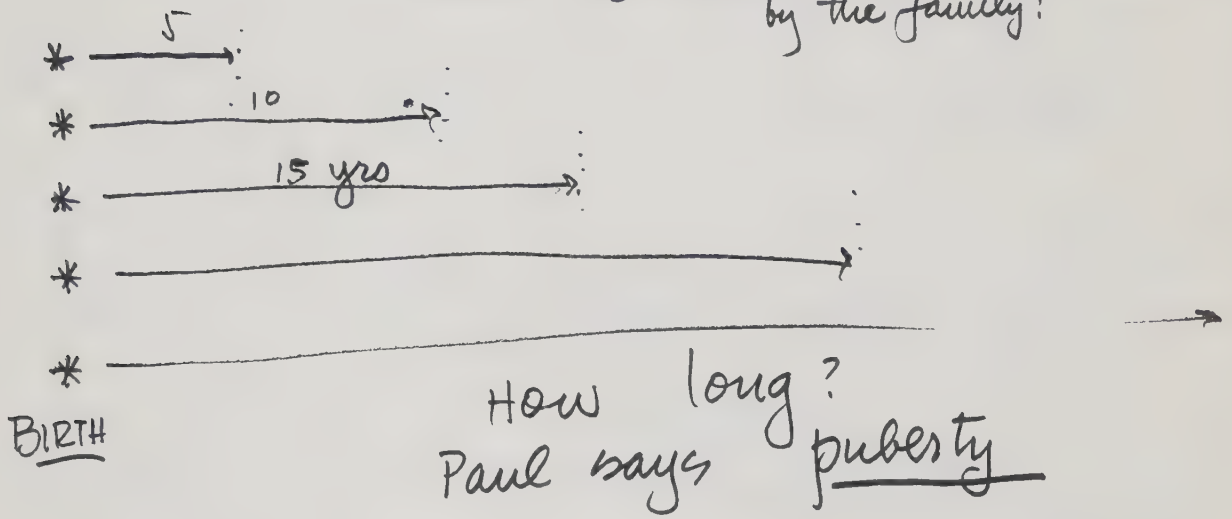 by the family?
5
10
15 yrs
BIRTH
How long?
Paul says puberty